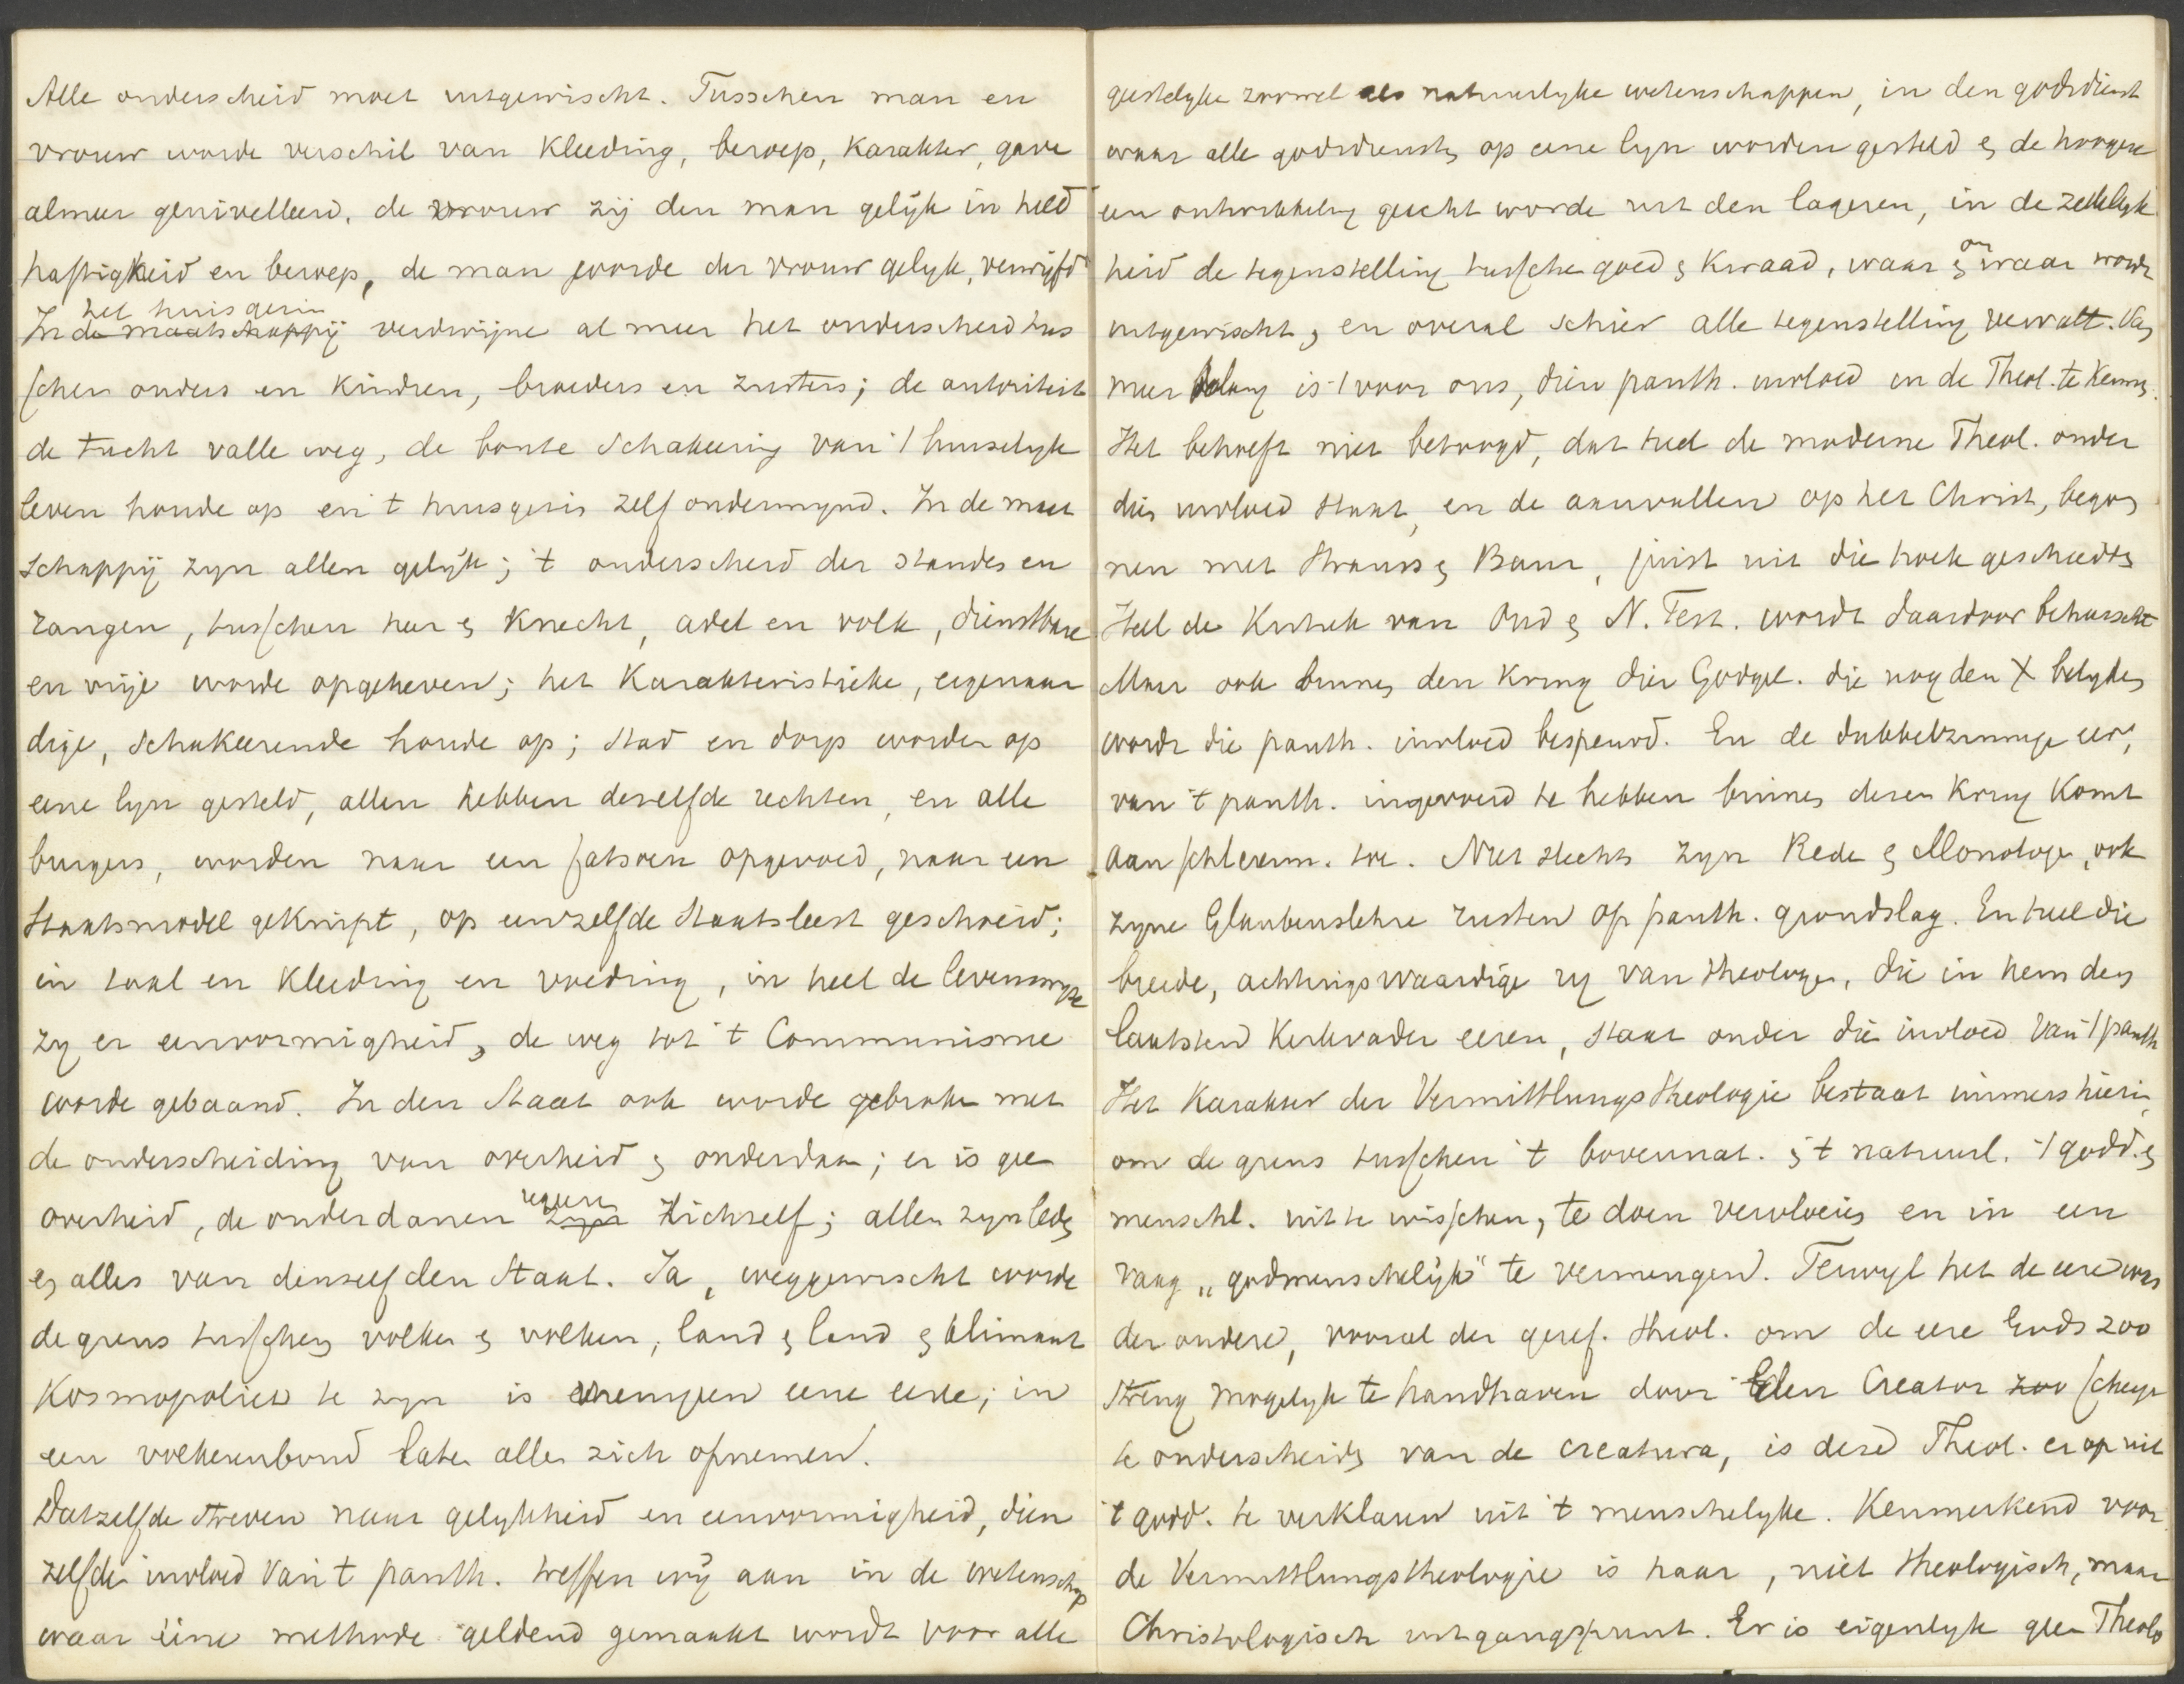 Alle onderscheid moet uitgewischt. Tusschen man en
vrouw worde verschil van kleeding, beroep, karakter, gave
almeer genivelleerd, de vrouw zij den man gelijk in held
haftigheid en beroep, de man worde der vrouw gelijk, verwijfd
In het huisgezin de maatschappij verdwijne al meer het onderscheid tus
schen ouders en kindren, broeders en zusters; de autoriteit
de tucht valle weg, de bonte schakeering van 't huiselyk
leven houde op en 't huisgezin zelf ondermynd. In de maat
schappij zyn allen gelijk; 't onderscheid der standen en
rangen, tusschen heer en knecht, adel en volk, dienstbare
en vrije worde opgeheven; het karakteristieke, eigenaar
dige, schakeerende houde op; stad en dorp worden op
eene lyn gesteld, allen hebben dezelfde rechten, en alle
burgers, worden naar een fatsoen opgevoed, naar een
staatsmodel geknipt, op eenzelfde staatsleest geschoeid;
in taal en kleeding en voeding, in heel de levenswyze
zy er eenvormigheid, de weg tot 't Communisme
worde gebaand. In den Staat ook worde gebroken met
de onderscheiding van overheid en onderdaan; er is geen
overheid, de onderdanen regeren zyn zichzelf; allen zyn leden
en alles van denzelfden Staat. Ja, weggewischt worde
de grens tusschen volken en volken, land en land en klimaat
Kosmopoliet te zyn is eene eere; in
een volkerenbond late alles zich opnemen.
Datzelfde streven naar gelykheid en eenvormigheid, dien
zelfden invloed van 't panth. treffen wij aan in de wetenschap
waar eene methode geldend gemaakt wordt voor alle
geestelyke zoowel als natuurlyke wetenschappen, in den godsdienst
waar alle godsdiensten op eene lyn worden gesteld en de hoogere
een ontwikkeling geacht worde uit den lageren, in de zedelyk
heid de tegenstelling tussche goed en kwaad, waar en onwaar wordt
uitgewischt, en overal schier alle tegenstelling vervalt. Van
meer belang is 't voor ons, dien panth. invloed in de Theol. te kennen.
Het behoeft niet betoogd, dat heel de moderne Theol. onder
dien invloed staat, en de aanvallen op het Christ, begon
nen met Strauss en Baur, juist uit die hoek geschiedden
Heel de Kritiek van Oud en N. Test. wordt daardoor beheerscht
Maar ook binnen den kring dier Godgel. die nog den X belyden
wordt die panth. invloed bespeurd. En de dubbelzinnige eer,
van 't panth. ingevoerd te hebben binnen dezen kring komt
aan Schleierm. toe. Niet slechts zyn Rede en Monologe, ook
zyne Glaubenslehre rusten op panth. grondslag. En heel die
breede, achtingswaardige ry van theologen, die in hem den
laatsten Kerkvader eeren, staat onder die invloed van 't panth
Het karakter der Vermittlungstheologie bestaat immers hierin,
om de grens tusschen 't bovennat. en 't natuurl. 't godd. en
menschl. uit te wisschen, te doen vervloeien en in een
vaag „godmenschelijk" te vermengen. Terwyl het de eere was
der andere, vooral der geref. theol. om de eere Gods zoo
streng mogelyk te handhaven door den Creator zoo scherp
te onderscheiden van de creatura, is deze Theol. er op uit
't godd. te verklaren uit 't menschelyke. Kenmerkend voor
de Vermittlungstheologie is haar, niet theologisch, maar
Christologisch uitgangspunt. Er is eigenlyk geen Theolo